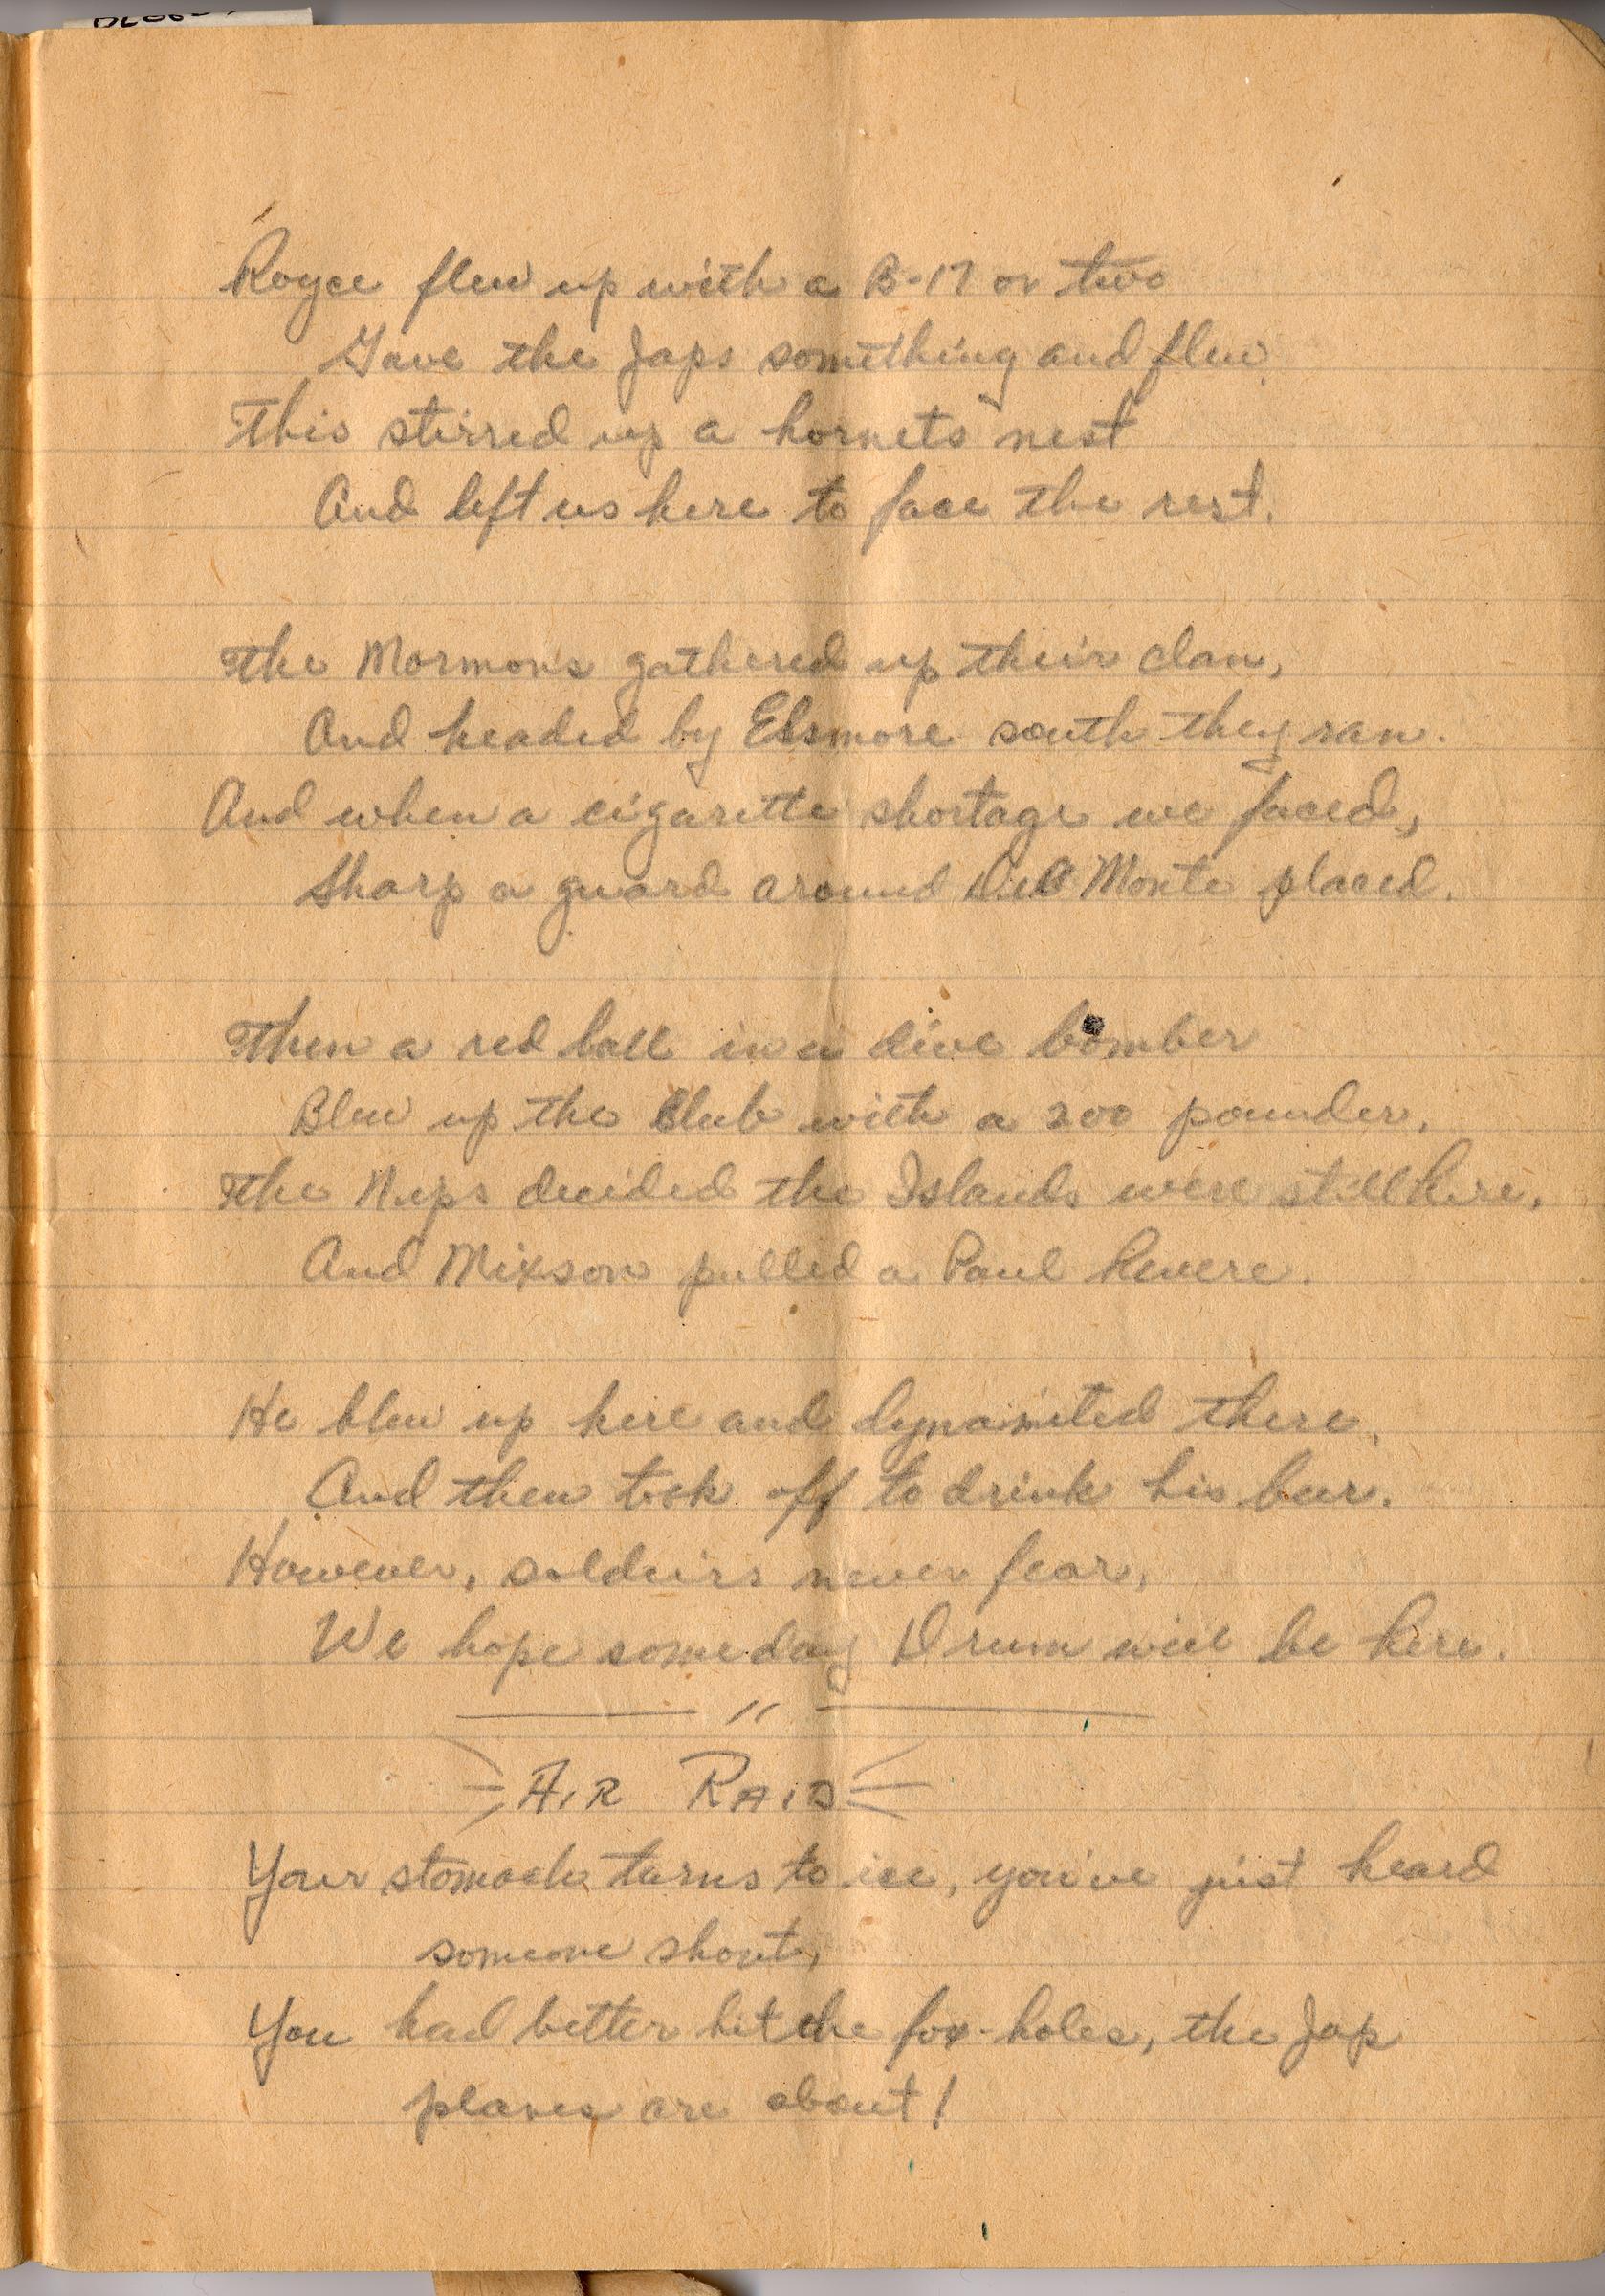 Royce flew up with a B-17 or two
Gave the Japs something and flew
This stirred up a hornets nest
And left us here to face the rest.
The Mormons gathered up their clan,
And headed by Elsmore south they ran.
And when a cigarette shortage we faced,
Sharp a guard around Del Monte placed.
Then a red ball in a dive bomber
Blew up the Club with a 200 pounder.
The Nips decided the Islands were still here,
And Mixson pulled a Paul Revere.
He blew up here and dynamited there,
And then took off to drink his beer.
However, soldeirs never fear,
We hope someday Drum will be here.
"
AIR RAID
Your stomach turns to ice, you've just heard
someone shout,
You had better hit the fox-holes, the Jap
planes are about!